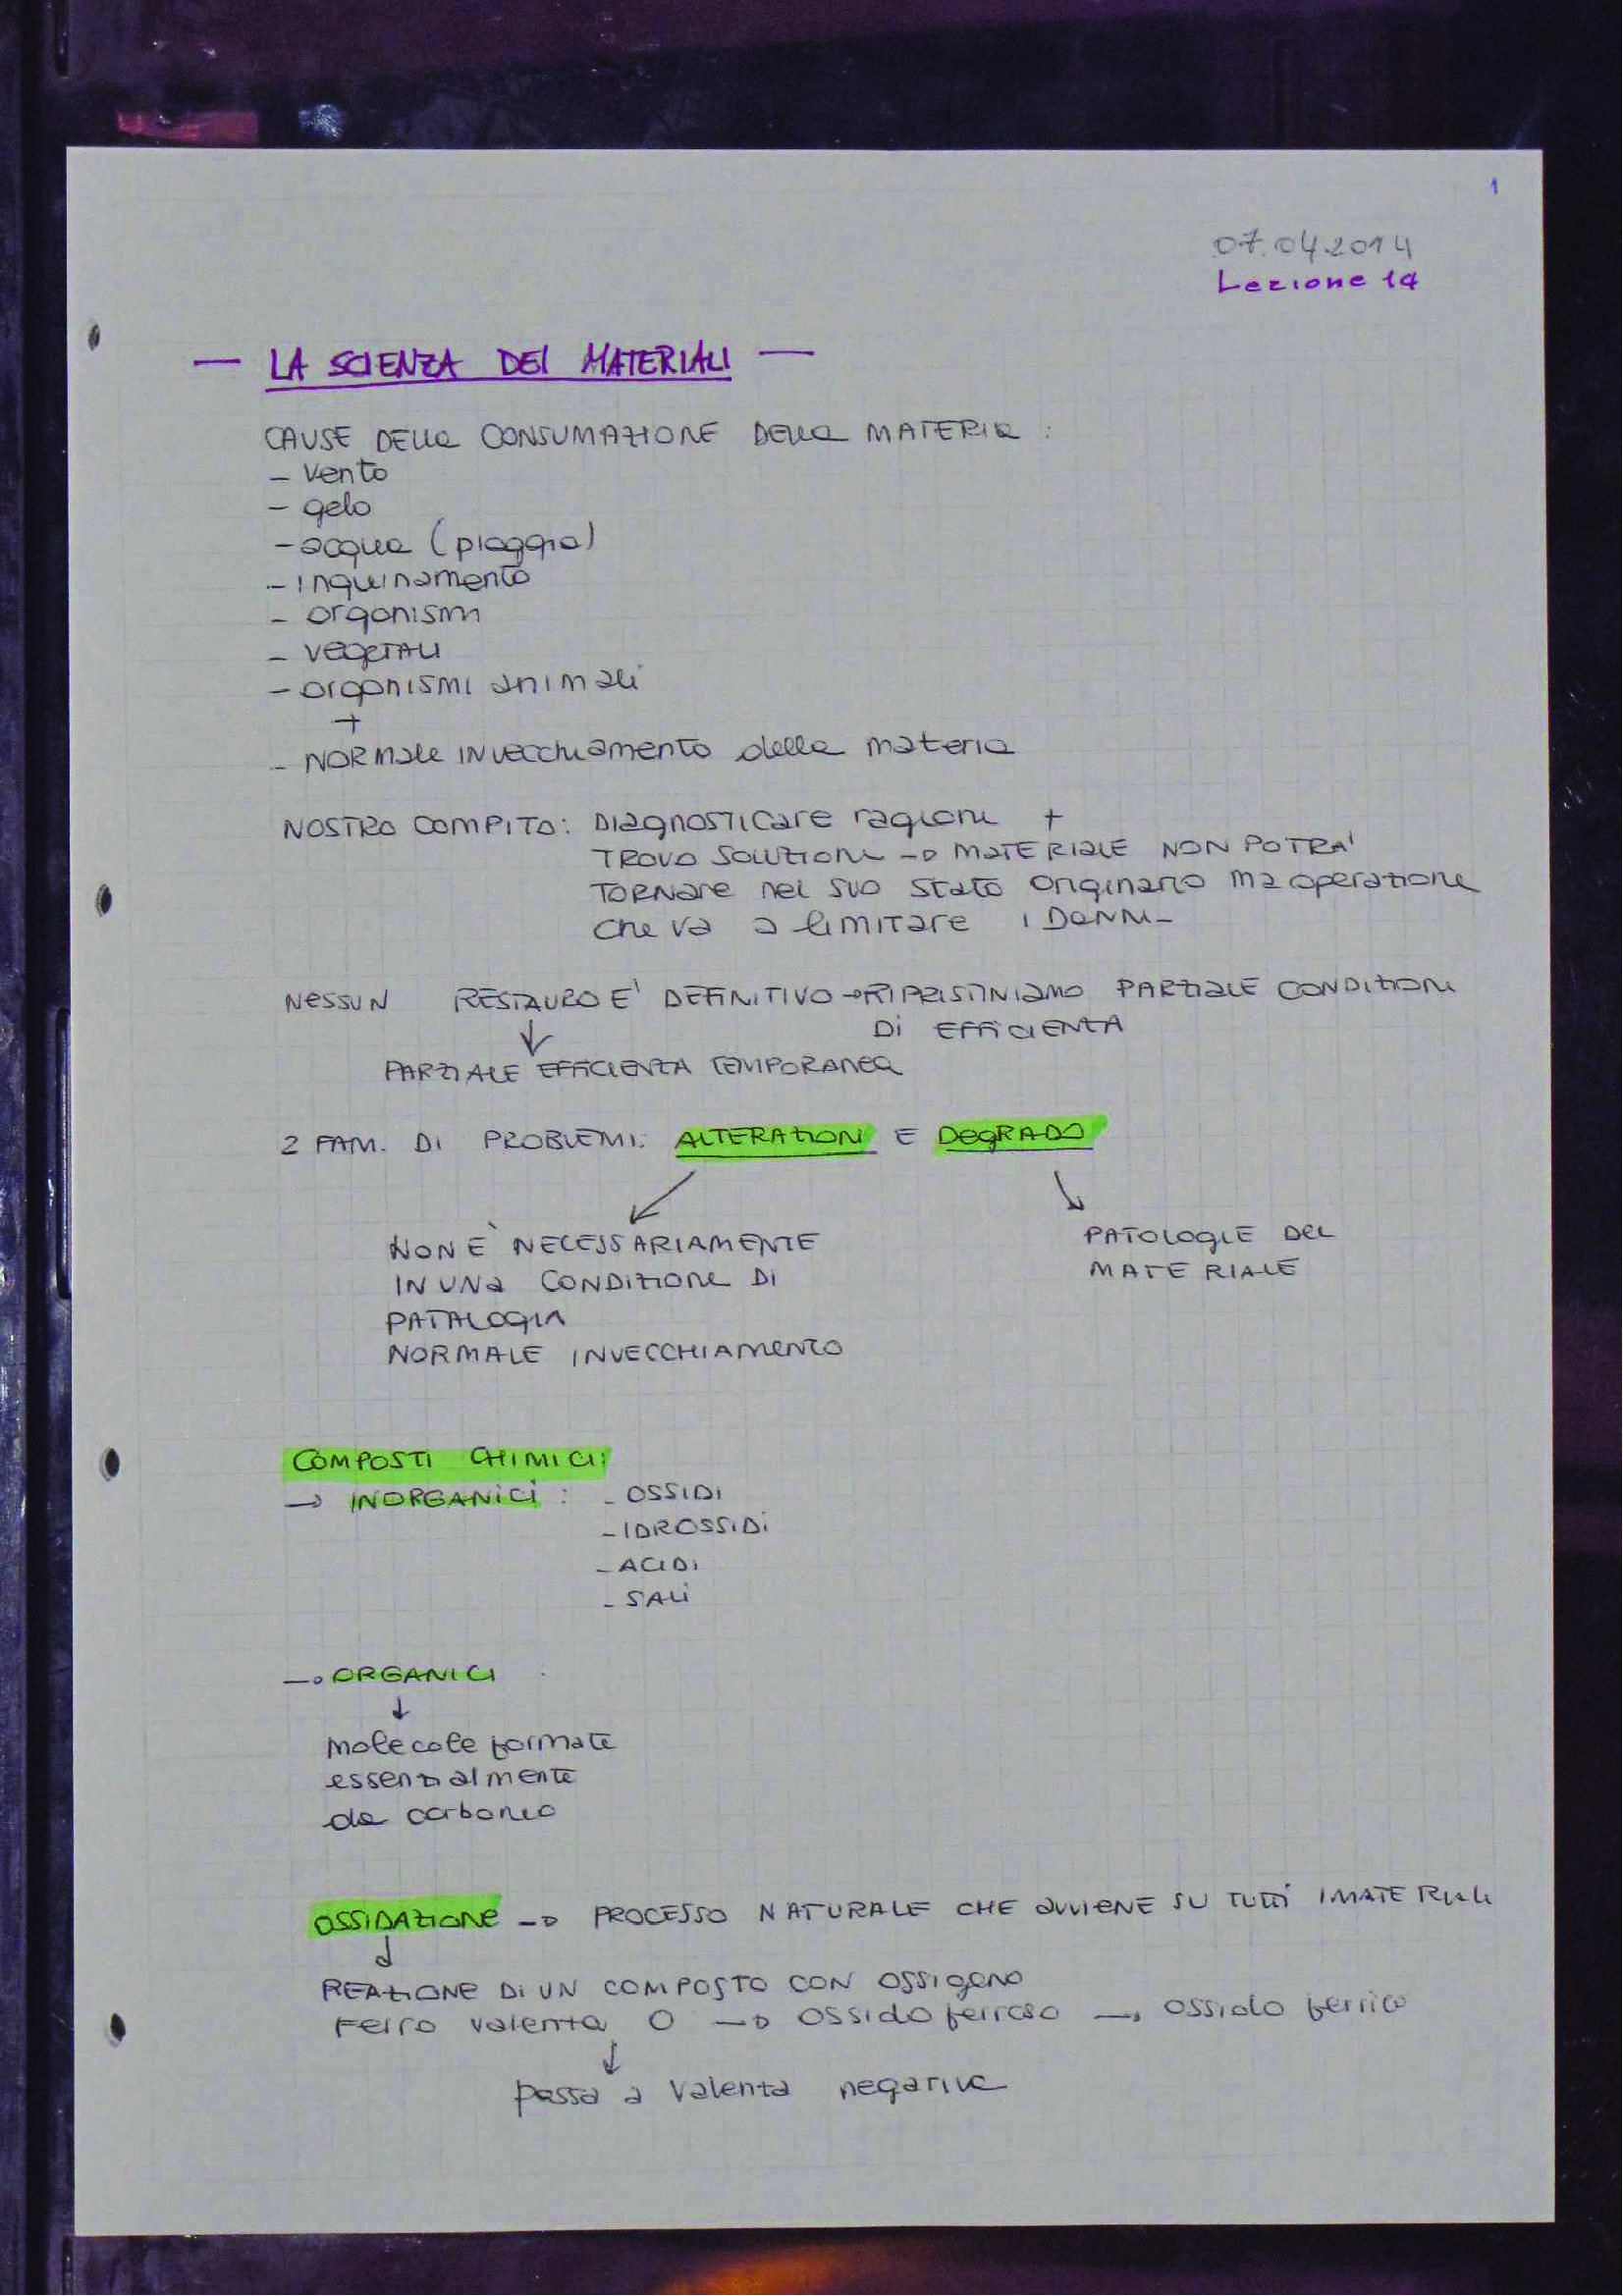 1
07.04.2014
Lezione 14
— LA SCIENZA DEI MATERIALI —
CAUSE DELLA CONSUMAZIONE DELLA MATERIA :
- vento
- gelo
- acqua (pioggia)
- inquinamento
- organismi
- VEGETALI
- organismi animali
+
- NORMALE INVECCHIAMENTO della materia
NOSTRO COMPITO: DIAGNOSTICARE ragioni +
TROVO SOLUZIONI → MATERIALE NON POTRA'
TORNARE nel SUO STATO ORIGINARIO MA operazione
che va a limitare i DANNI -
NESSUN RESTAURO E' DEFINITIVO → RIPRISTINIAMO PARZIALE CONDIZIONI
↓ DI EFFICIENZA
PARZIALE EFFICIENZA TEMPORANEA
2 FAM. DI PROBLEMI: ALTERAZIONI E DEGRADO
NON È NECESSARIAMENTE
IN UNA CONDIZIONE DI
PATALOGIA
NORMALE INVECCHIAMENTO
PATOLOGIE DEL
MATERIALE
COMPOSTI CHIMICI:
→ INORGANICI : - OSSIDI
- IDROSSIDI
- ACIDI
- SALI
→ ORGANICI
↓
molecole formate
essenzialmente
da carbonio
OSSIDAZIONE → PROCESSO NATURALE CHE AVVIENE SU TUTTI I MATERIALI
↓
REAZIONE DI UN COMPOSTO CON OSSIGENO
Ferro valenza 0 → ossido ferroso → ossido ferrico
↓
passa a valenza negativa